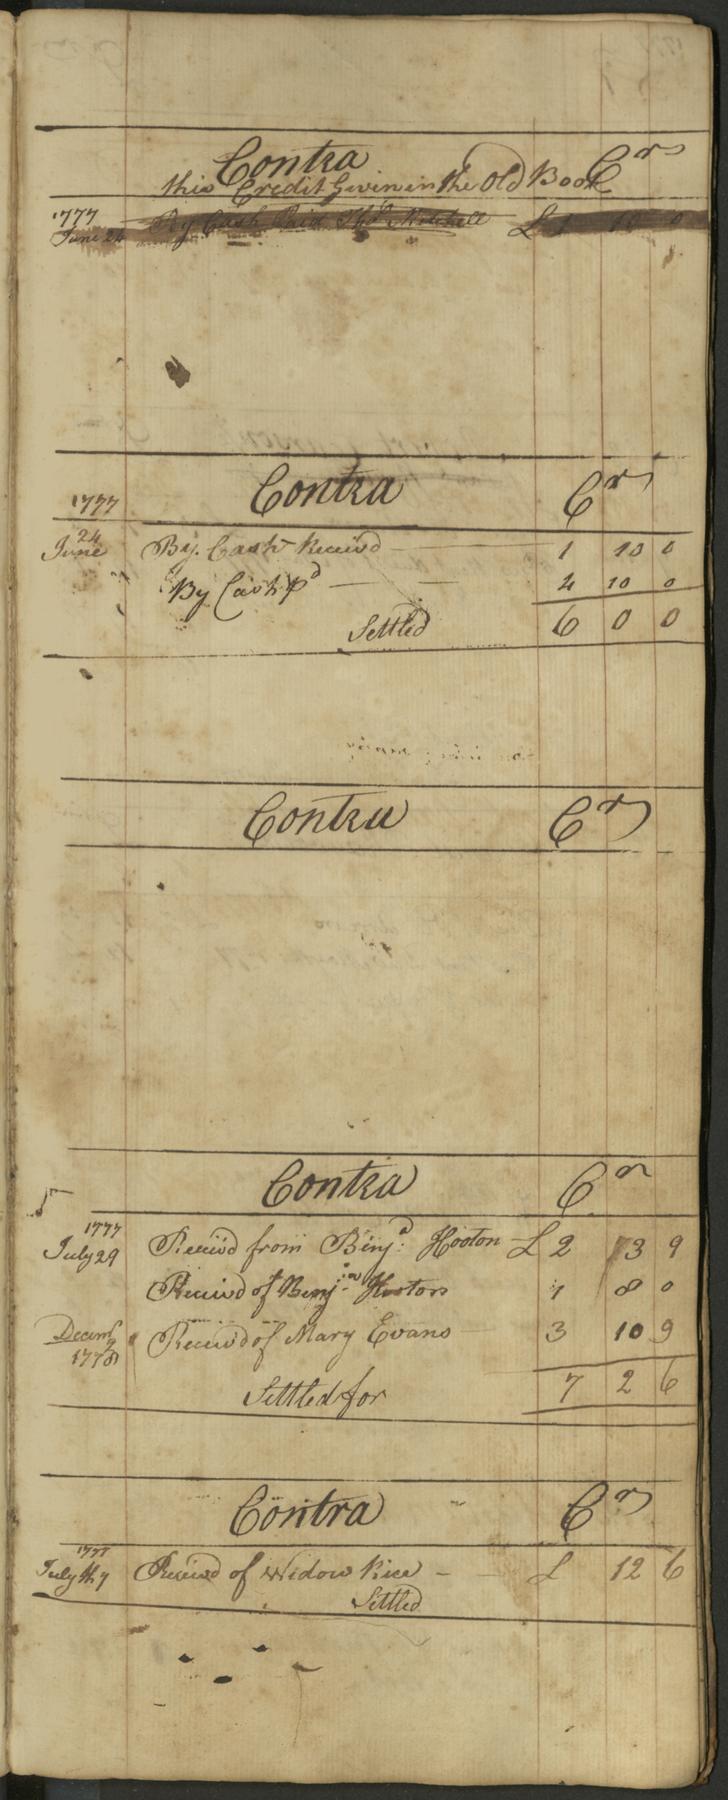 Contra Crs
this Credit Given in the Old Book
1777
June 24 By Cash Paid Thos Mitchell £ 1 10 0
1777 Contra Crs
24
June By Cash Receivd 1 10 0
By Cash pd 4 10 0
Settled 6 0 0
Contra Crs
Contra Cr
1777
July 29 Receivd from Benjd: Hooton £ 2 3 9
Receivd of Benjn Hootors 1 8 0
Decembr 9
1778 Receivd of Mary Evans 3 10 9
Settled for 7 2 6
Contra Crs
1777
July th 7 Receivd of Widow Rice £ 12 6
Settled